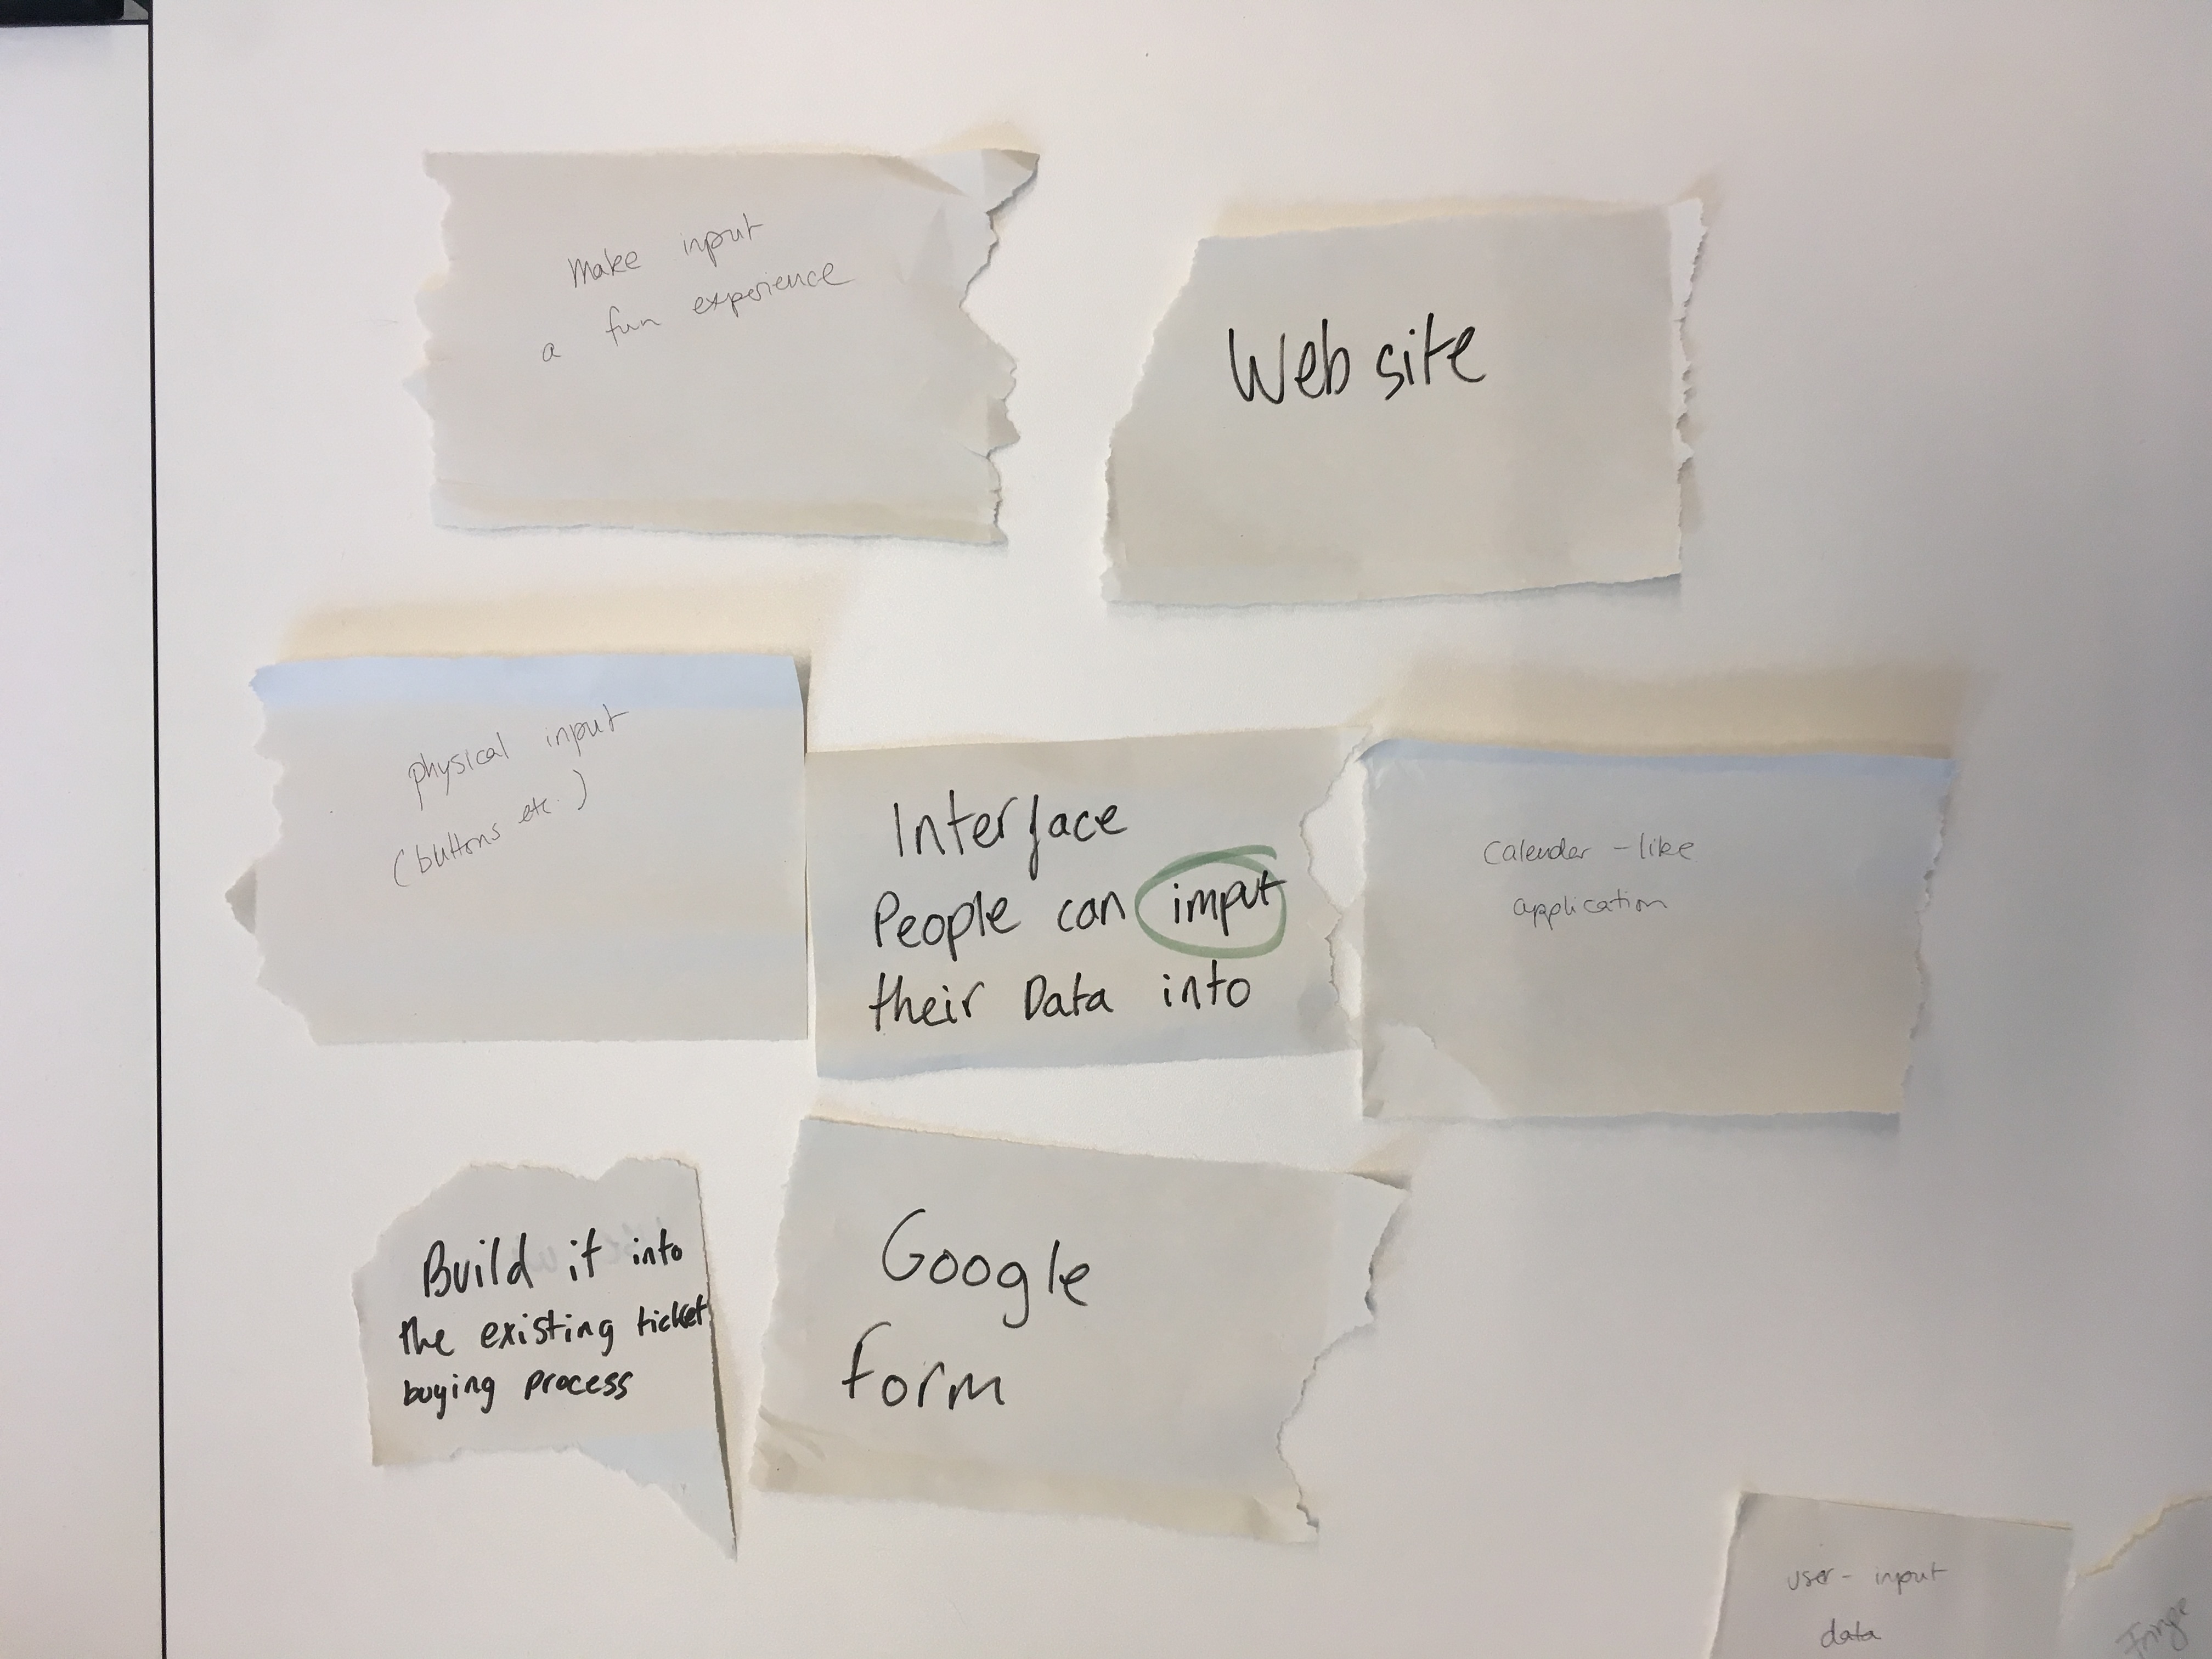 Make input
a fun experience
Web site
physical input
(buttons etc.)
Interface
People can imput
their Data into
Calender - like
application
Build it into
the existing ticket
buying process
Google
form
user - input
data
Fringe